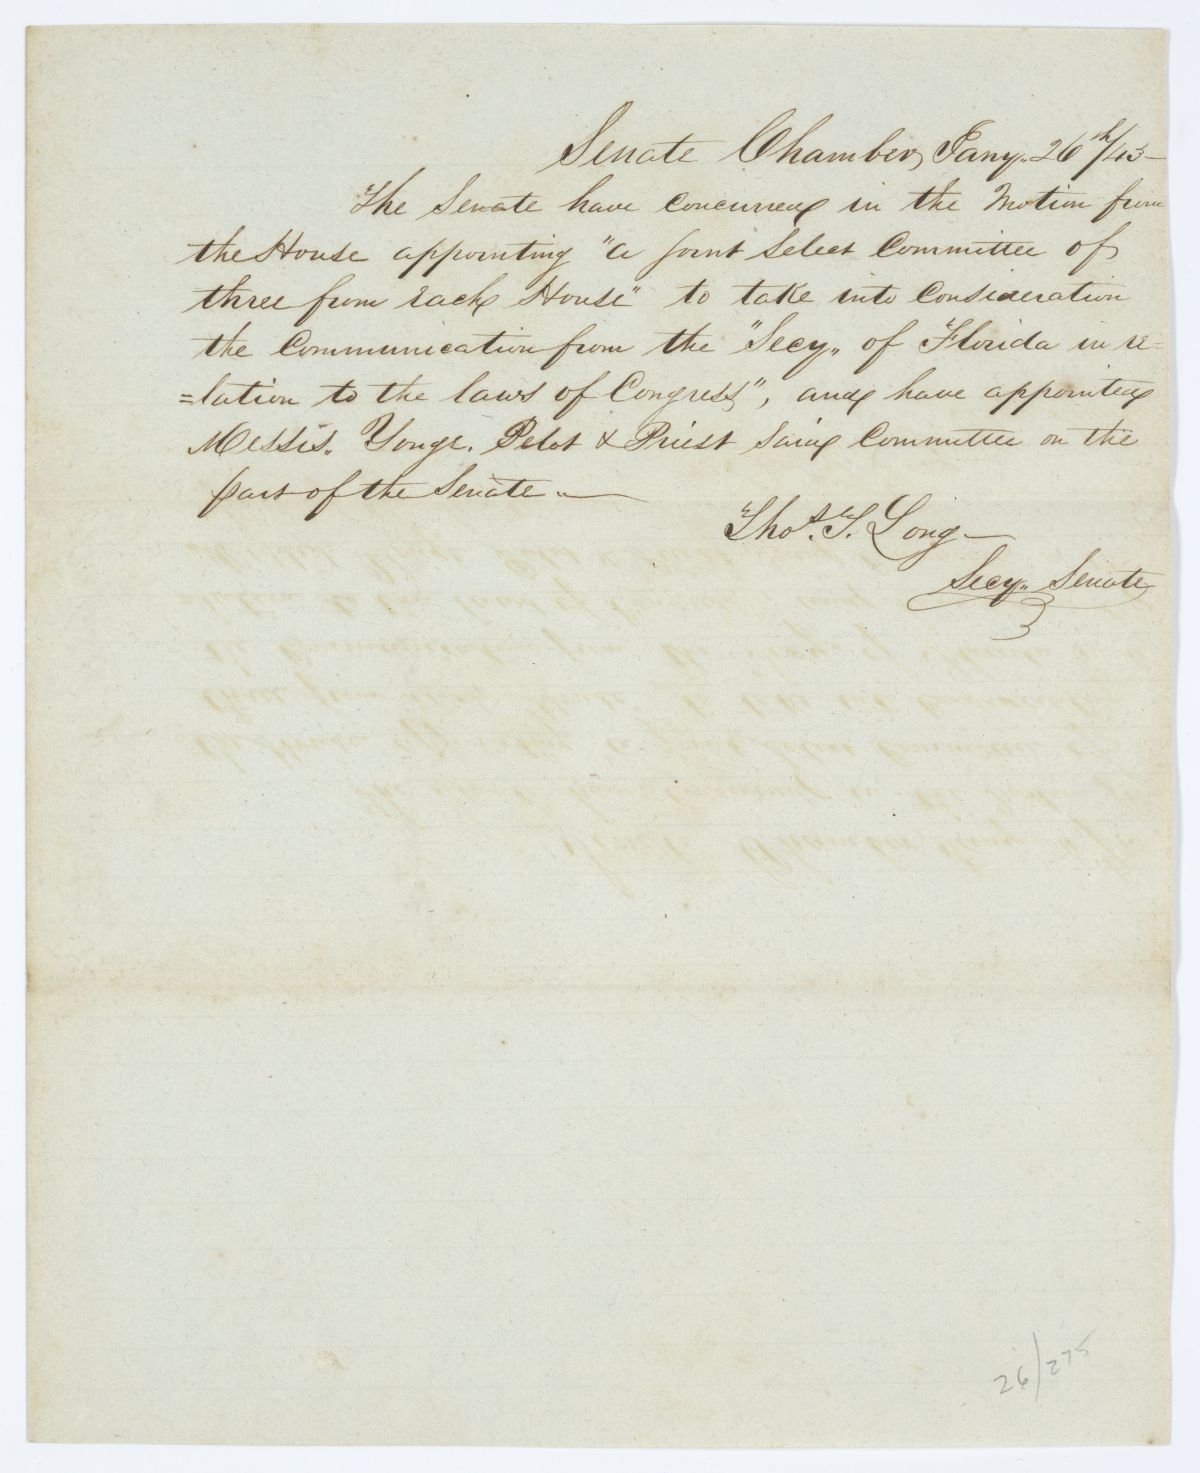 Senate Chamber, Jany. 26th/43–
The Senate have concurred in the Motion from
the House appointing "a joint Select Committee of
three from each House" to take into Consideration
the Communication from the "Secy,, of Florida in re=
=lation to the laws of Congress", and have appointed
Messrs. Yonge. Pelot & Priest said Committee on the
part of the Senate.—
Thos. T. Long—
Secy,, Senate
26/275